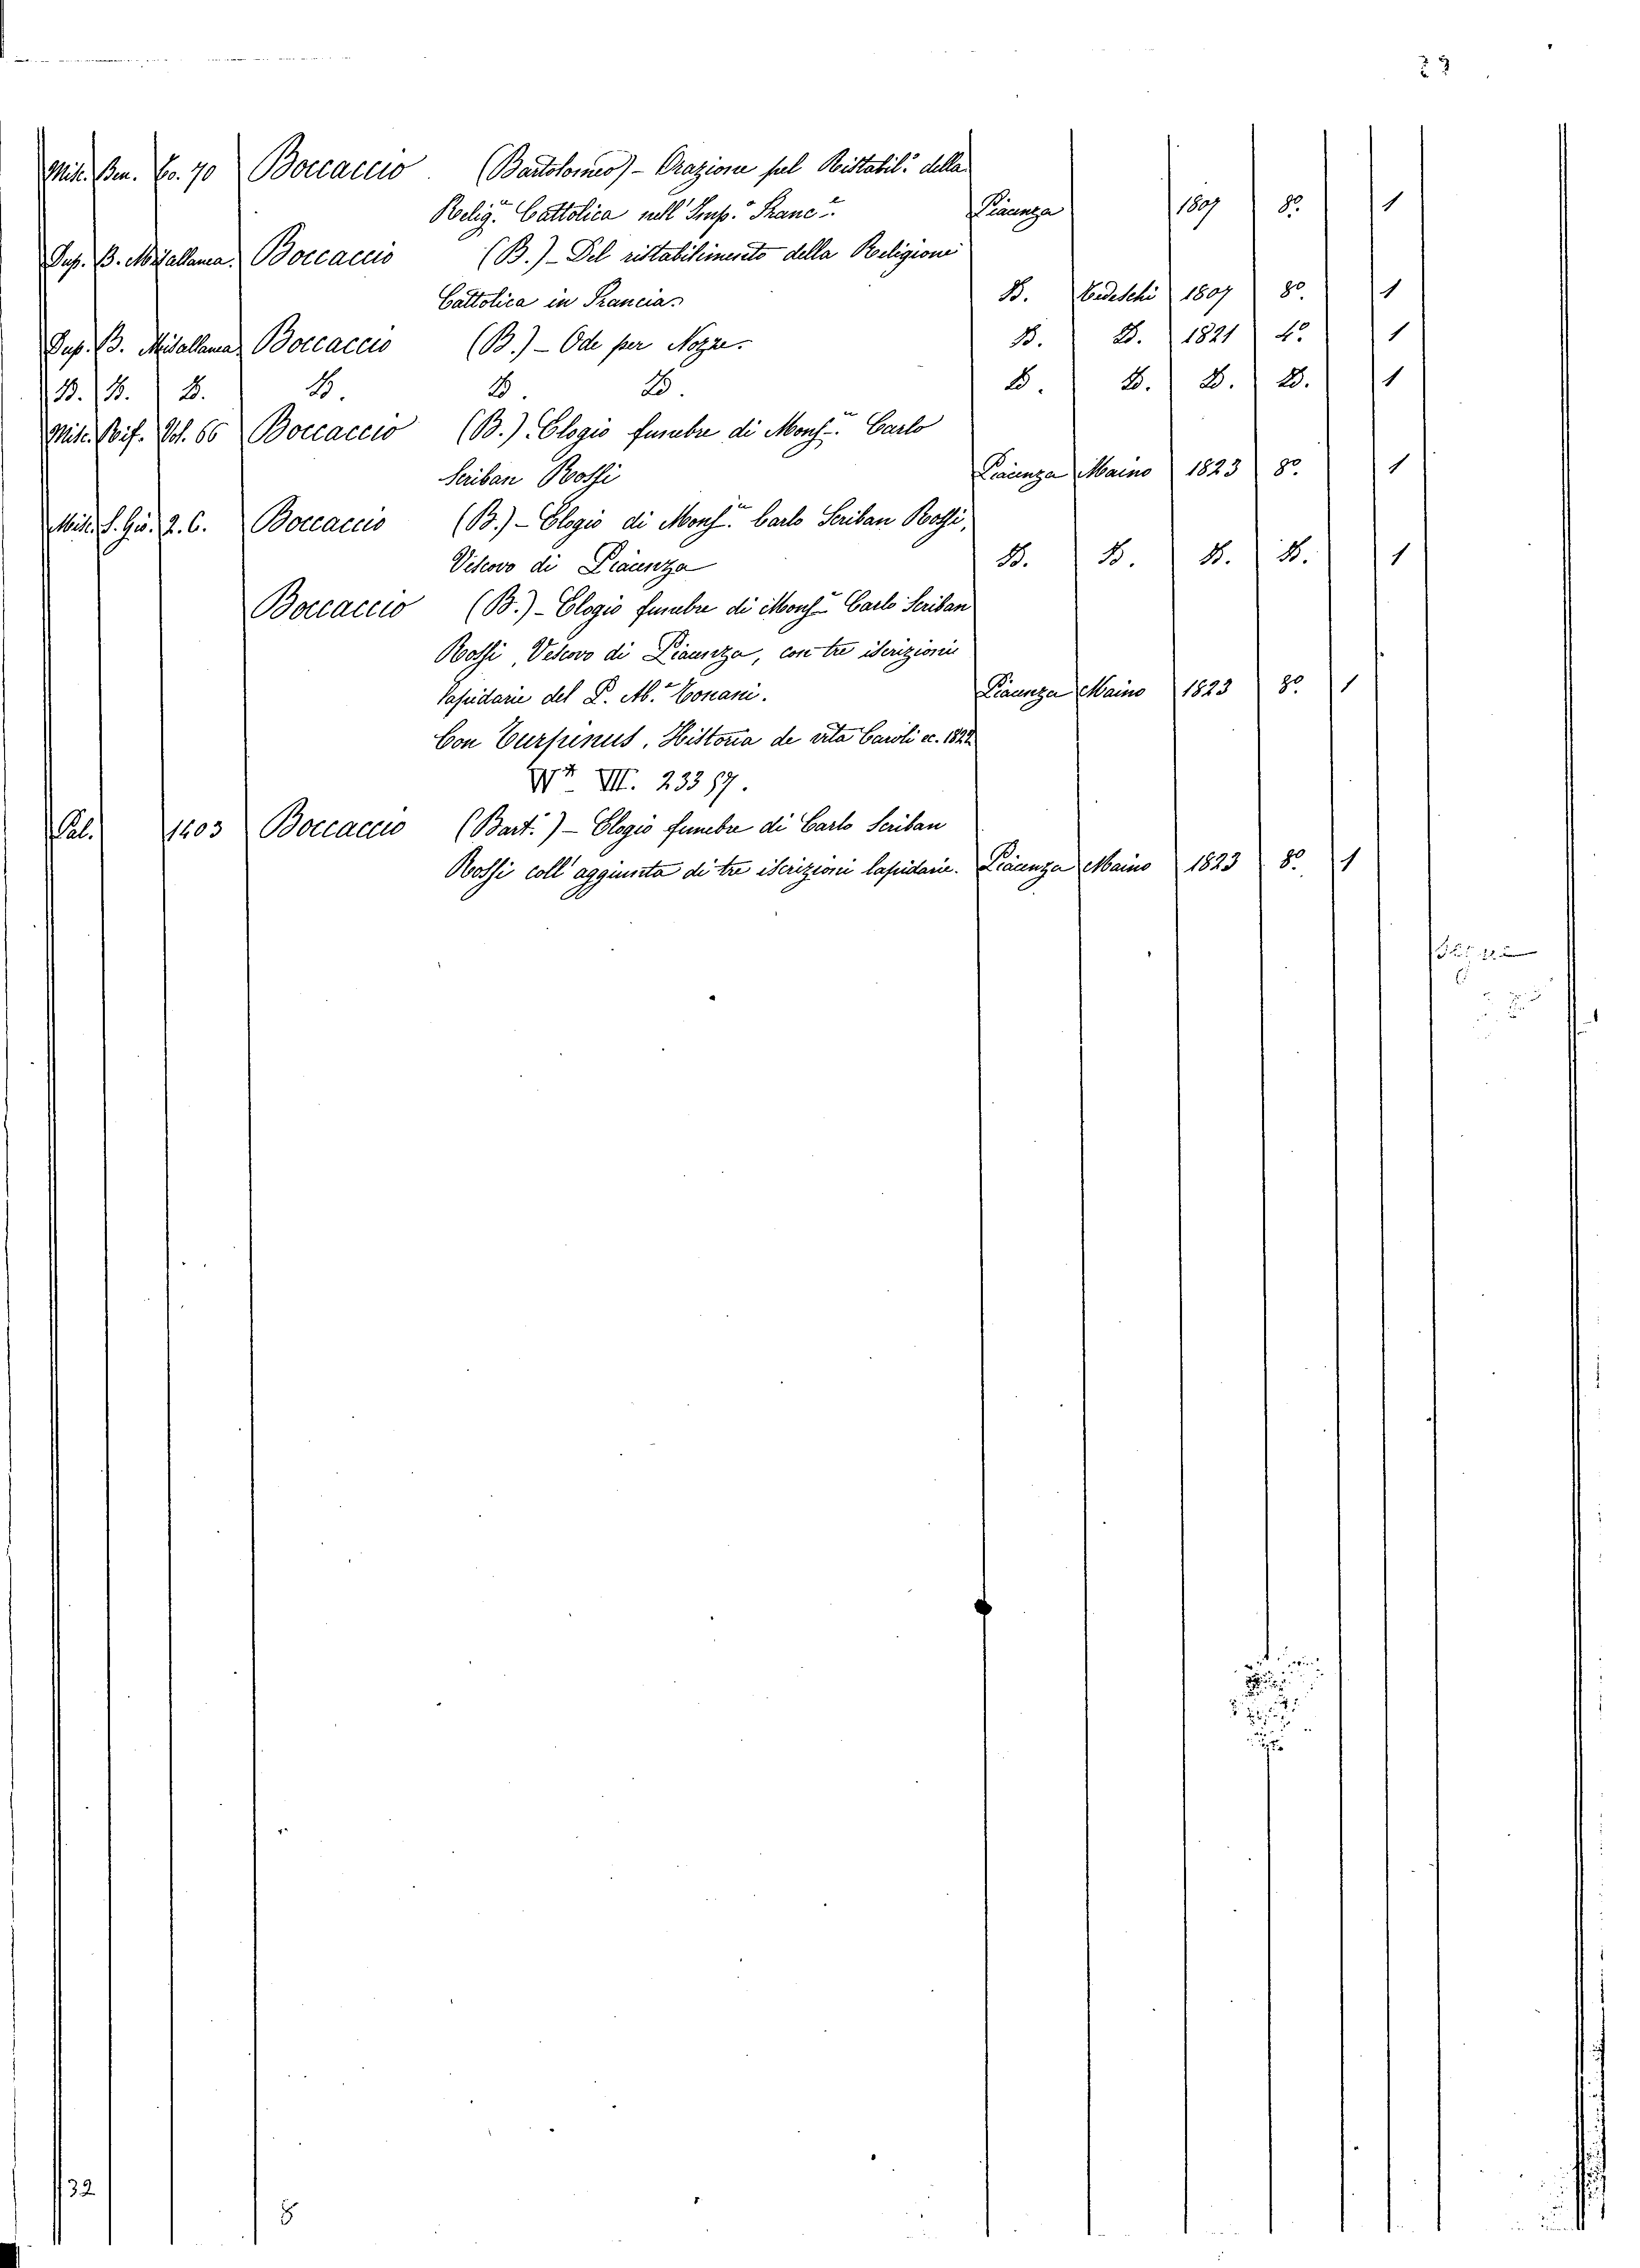 23
Misc. Ben. Co. 70 Boccaccio (Bartolomeo) - Orazione sul Ristabil.º della
Relig.e Cattolica nell' Imp.º Franc.e Piacenza 1807 8º 1
Dup. B. Miscellanea. Boccaccio (B.) - Del ristabilimento della Religione
Cattolica in Francia. D. Tedeschi 1807 8º 1
Dup. B. Miscellanea Boccaccio (B.) - Ode per Nozze. D. D. 1821 4º 1
D. D. D. D. D. D. D. D. D. D. 1
Misc. Rif. Vol. 66 Boccaccio (B.) Elogio funebre di Mons.r Carlo
Scriban Rossi Piacenza Maino 1823 8º 1
Misc. S. Gio. 2. 6. Boccaccio (B.) - Elogio di Mons.r Carlo Scriban Rossi,
Vescovo di Piacenza D. D. D. D. 1
Boccaccio (B.) - Elogio funebre di Mons.r Carlo Scriban
Rossi, Vescovo di Piacenza, con tre iscrizioni
lapidarie del P. M.º Tonani. Piacenza Maino 1823 8º 1
Con Turpinus, Historia de vita Caroli ec. 1822
VII. 23387.
Pal. 1203 Boccaccio (Bart.º) - Elogio funebre di Carlo Scriban
Rossi coll' aggiunta di tre iscrizioni lapidarie. Piacenza Maino 1823 8º 1
32
8